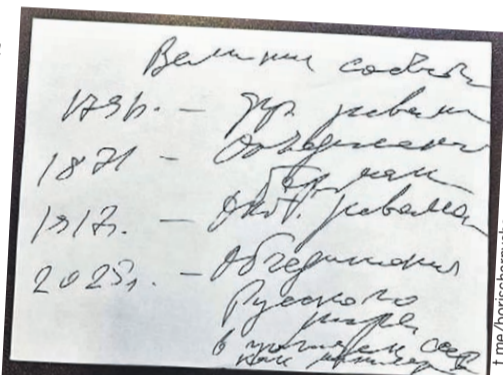 Великие события
179 г. – фр. револю
1871 – Объединение
Германии
1917 г. – Окт. револю
2025 г. – Объединения
Русского
мира
в
t.me/borischernysh